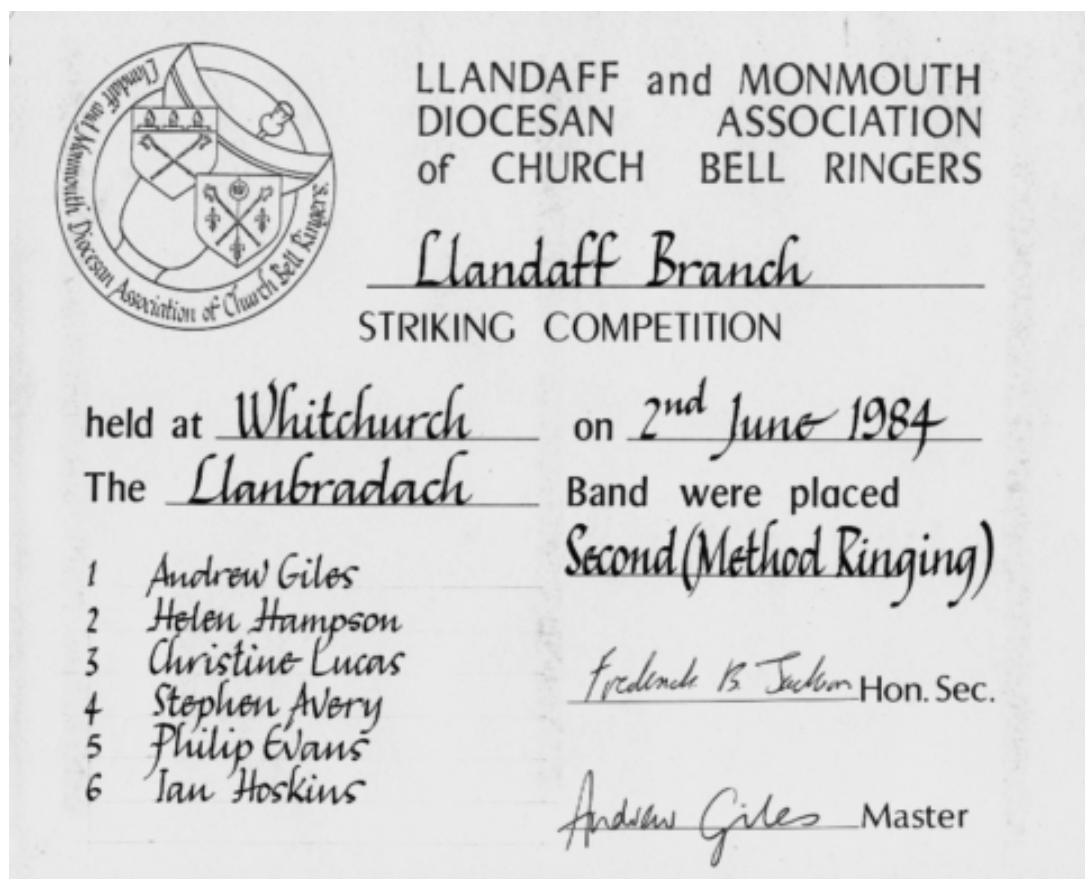 Llandaff and Monmouth Diocesan Association of Church Bell Ringers.
LLANDAFF and MONMOUTH
DIOCESAN ASSOCIATION
of CHURCH BELL RINGERS
Llandaff Branch
STRIKING COMPETITION
held at Whitchurch on 2nd June 1984
The Llanbradach Band were placed
Second (Method Ringing)
1 Andrew Giles
2 Helen Hampson
3 Christine Lucas
4 Stephen Avery
5 Philip Evans
6 Ian Hoskins
Frederick B. Jackson Hon. Sec.
Andrew Giles Master